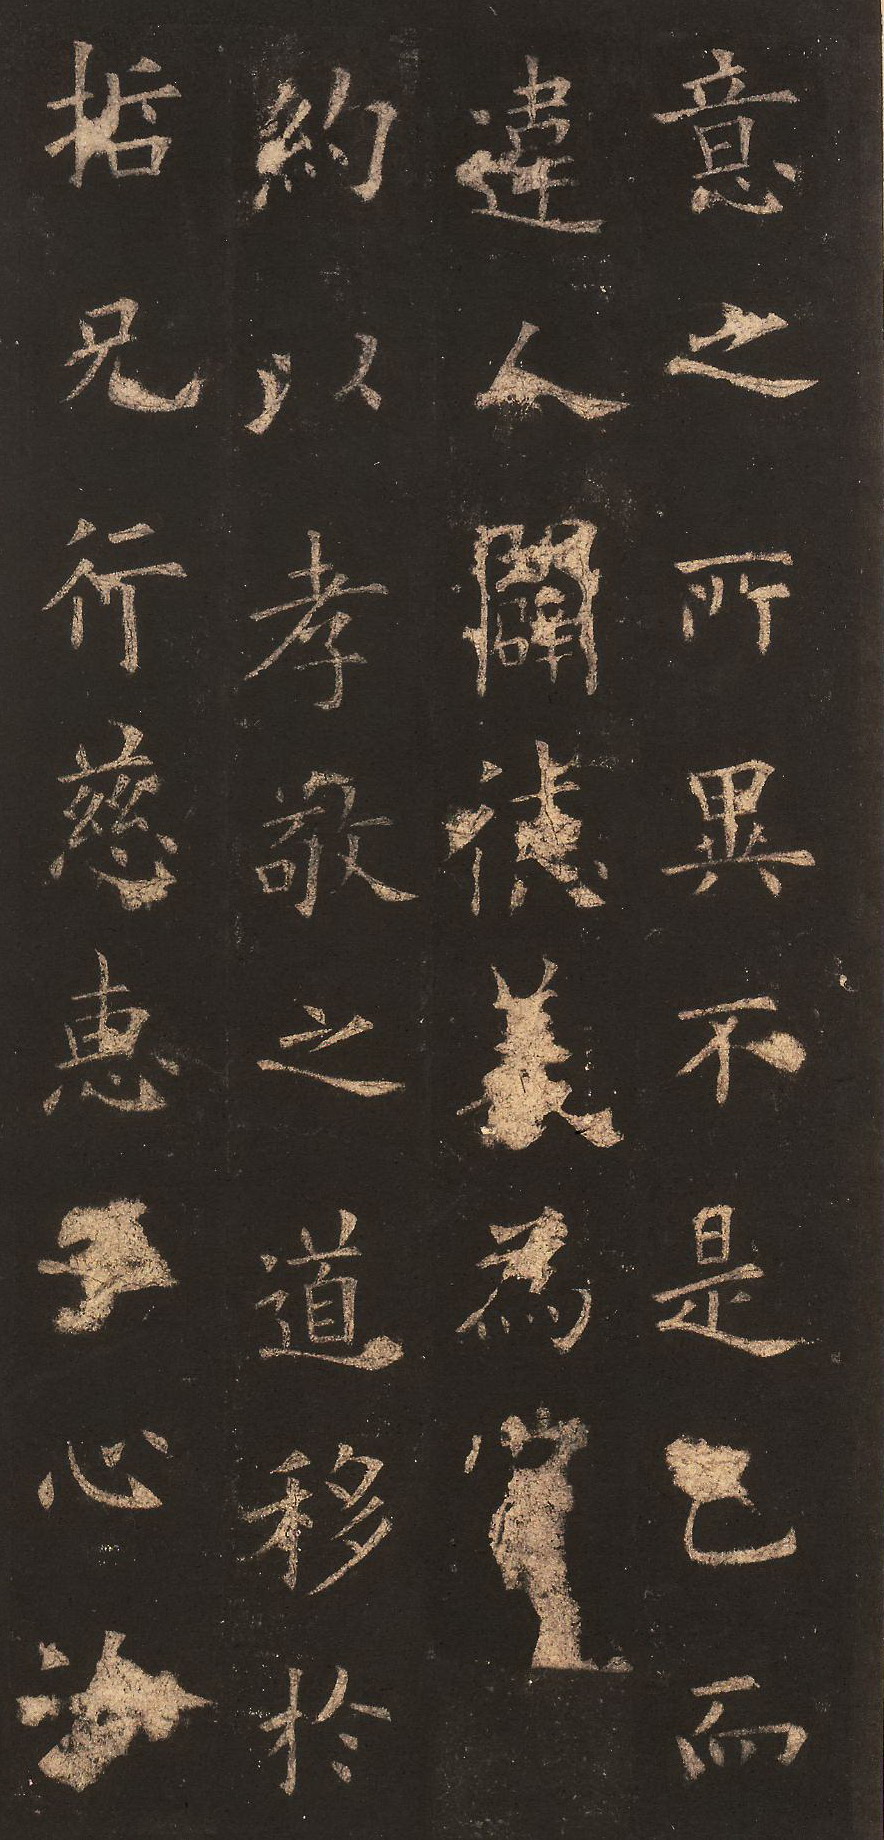 意之所異不是己而
違人闡德義為
約以孝敬之道移於
哲兄行慈惠心